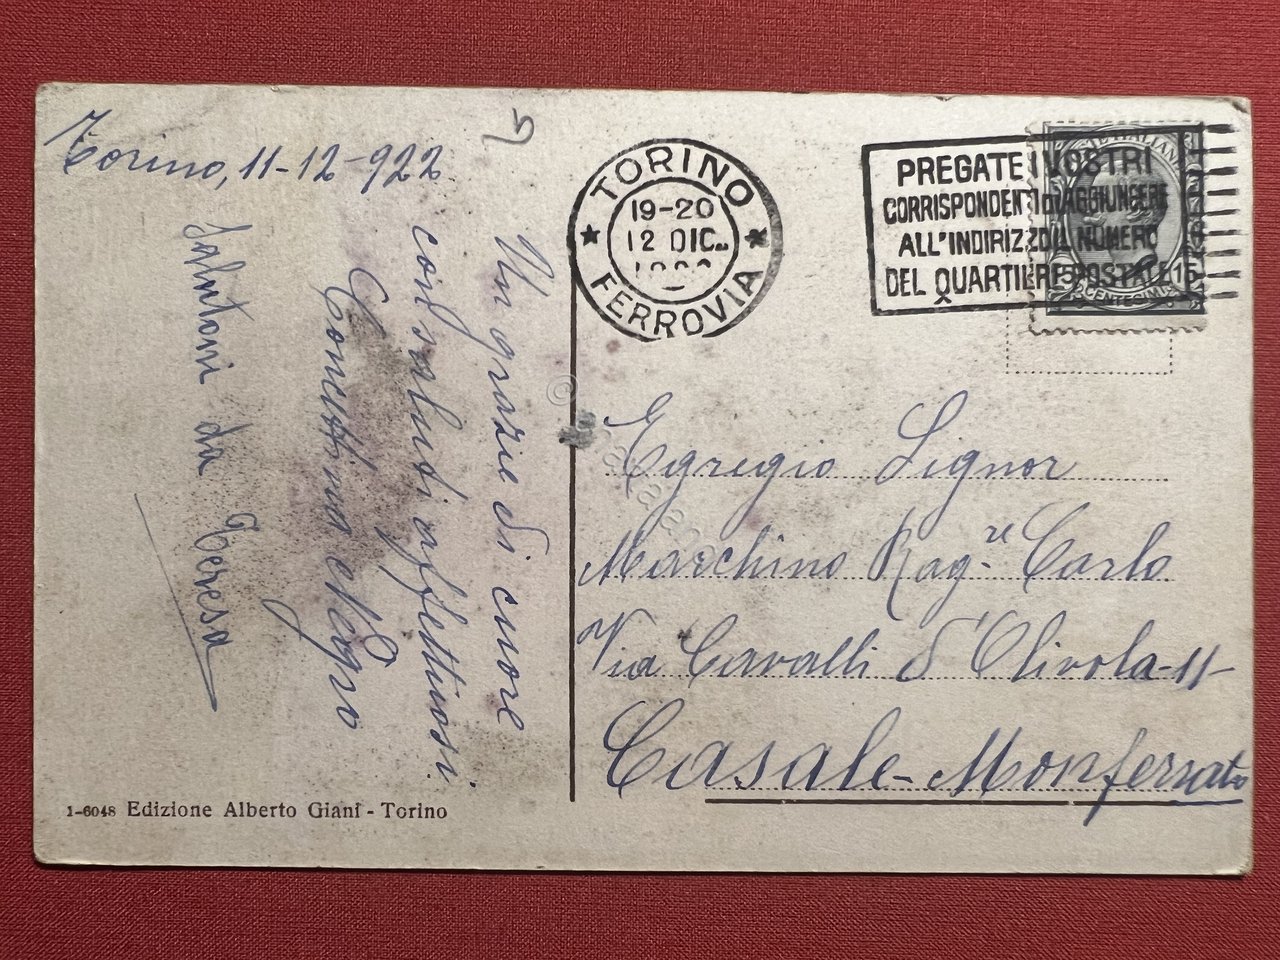 Torino, 11-12-922
Un grazie di cuore
coi saluti affettuosi
Concettina e Negro
Saluti da Teresa
9
TORINO
19-20
12 DIC
FERROVIA
PREGATE I VOSTRI
CORRISPONDENTI di AGGIUNGERE
ALL'INDIRIZZO IL NUMERO
DEL QUARTIERE POSTALE 15
CENTESIMI
Egregio Signor
Macchino Rag.re Carlo
Via Cavalli d'Olivola-11-
Casale-Monferrato
1-6048 Edizione Alberto Giani - Torino